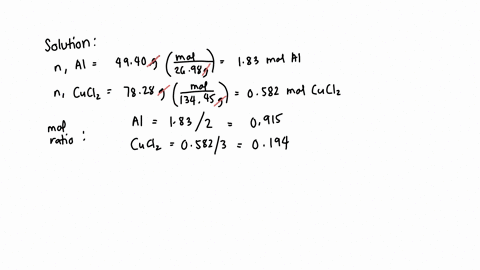 Solution:
n, Al = 49.40 g (mol / 26.98 g) = 1.83 mol Al
n, CuCl₂ = 78.28 g (mol / 134.45 g) = 0.582 mol CuCl₂
mol ratio : Al = 1.83/2 = 0.915
CuCl₂ = 0.582/3 = 0.194